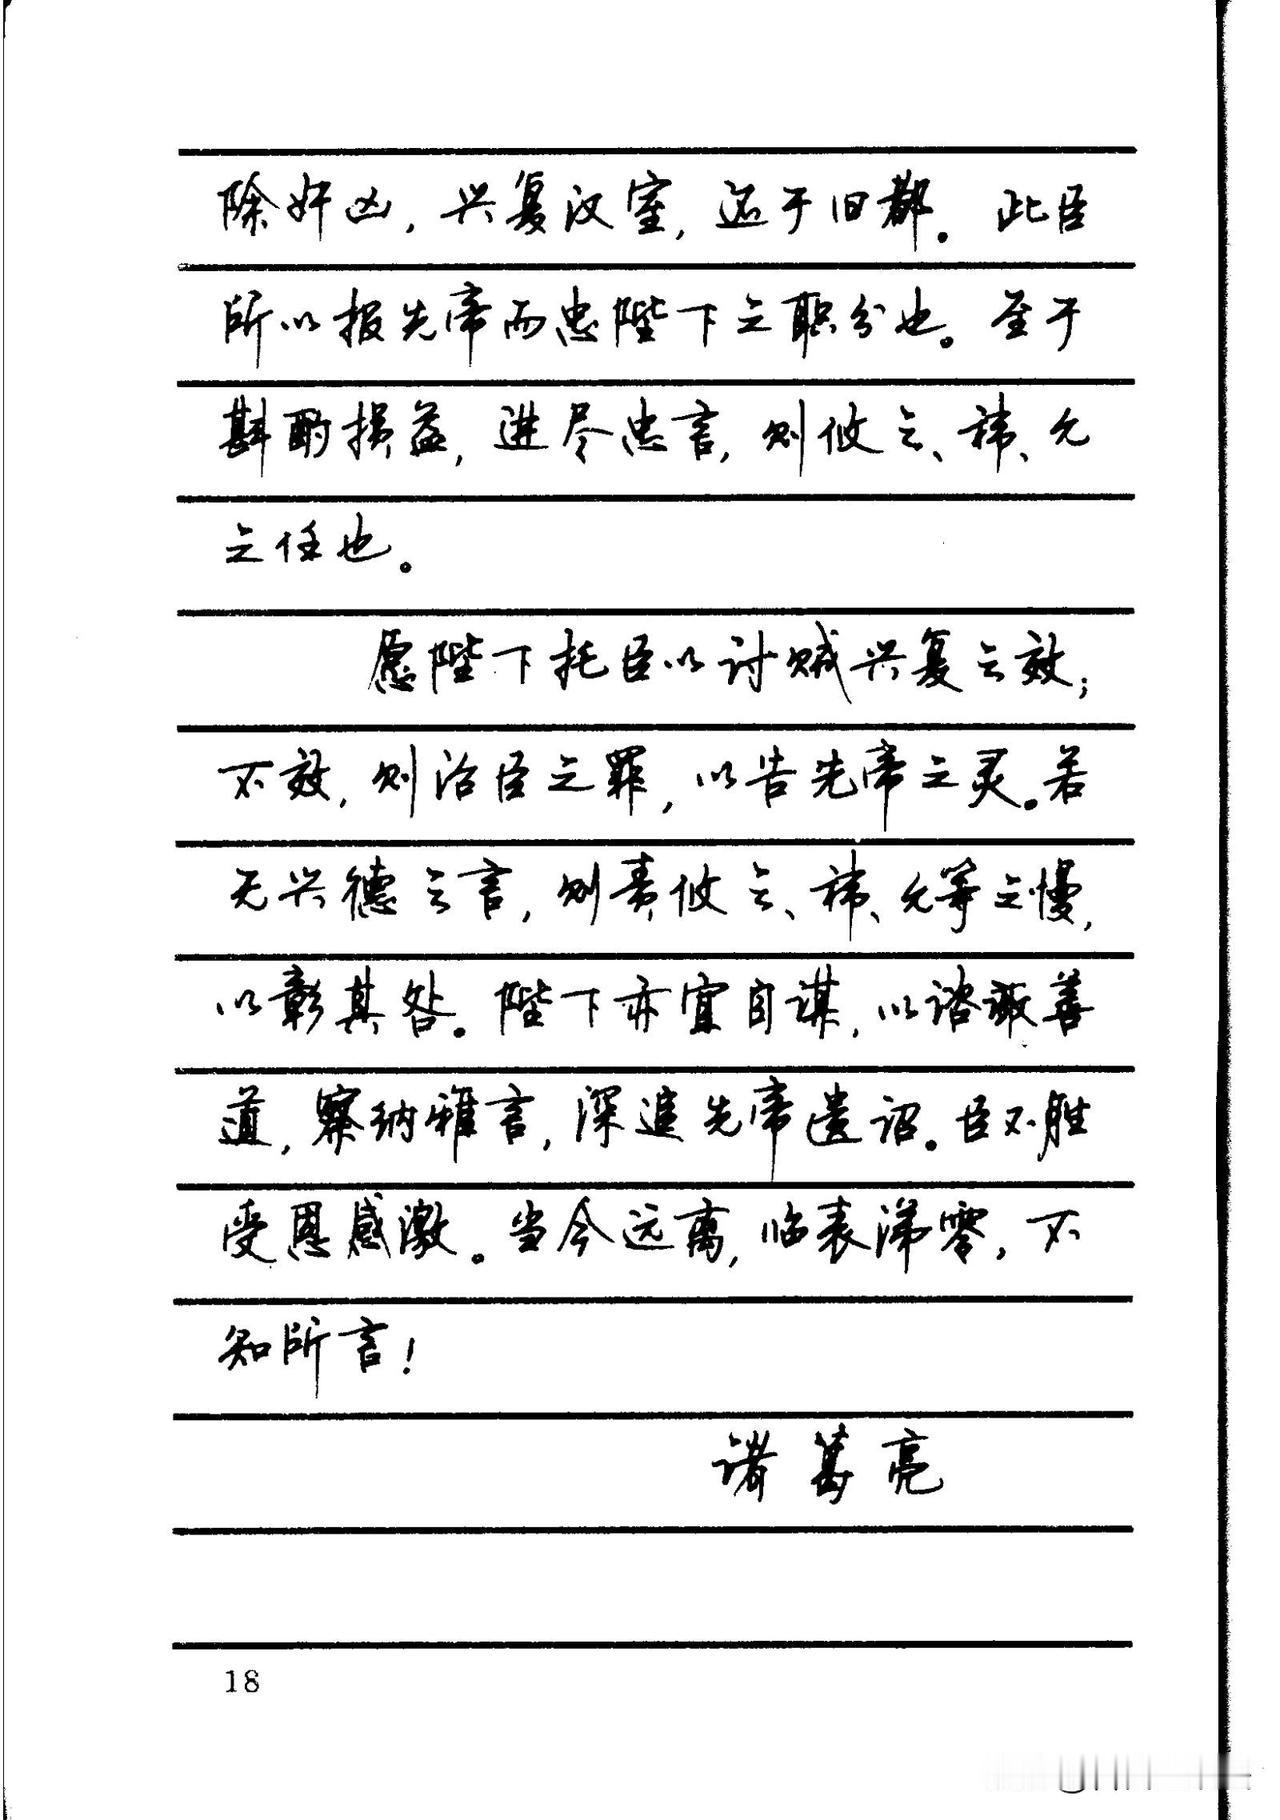 除奸凶，兴复汉室，还于旧都。此臣
所以报先帝而忠陛下之职分也。至于
斟酌损益，进尽忠言，则攸之、祎、允
之任也。
愿陛下托臣以讨贼兴复之效；
不效，则治臣之罪，以告先帝之灵。若
无兴德之言，则责攸之、祎、允等之慢，
以彰其咎。陛下亦宜自谋，以谘诹善
道，察纳雅言，深追先帝遗诏。臣不胜
受恩感激。当今远离，临表涕零，不
知所言！
诸葛亮
18